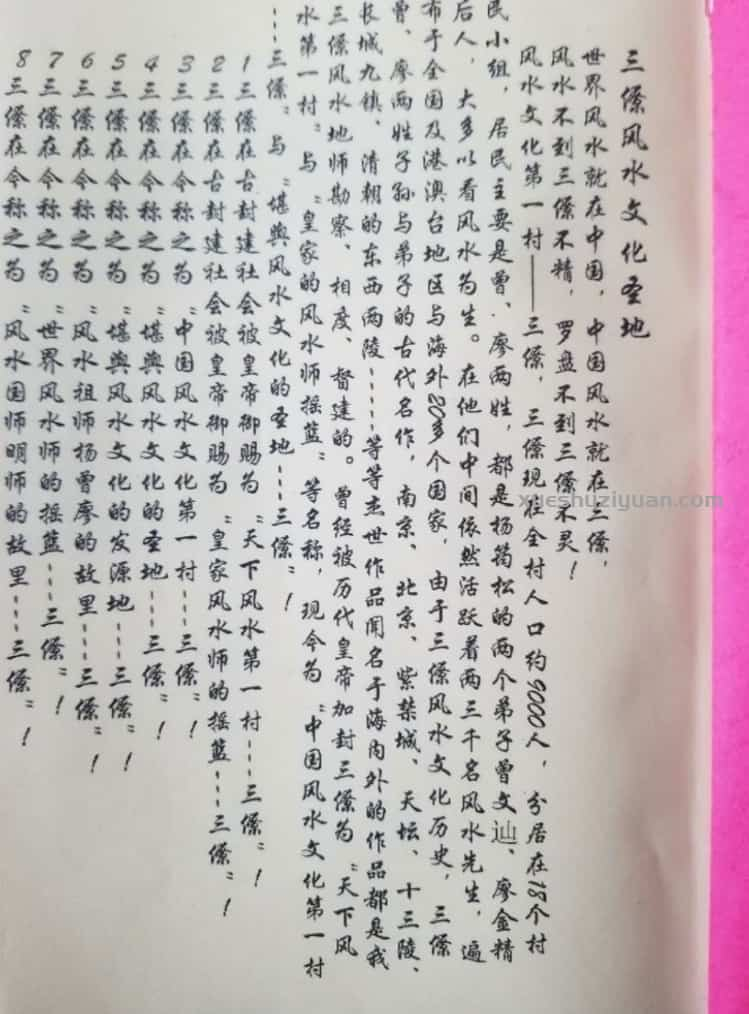 三僚风水文化圣地
世界风水就在中国，中国风水就在三僚，
风水不到三僚不精，罗盘不到三僚不灵！
风水文化第一村——三僚，三僚现在全村人口约9000人，分居在18个村
民小组，居民主要是曾、廖两姓，都是杨筠松的两个弟子曾文辿、廖金精
后人，大多以看风水为生。在他们中间依然活跃着两三千名风水先生，遍
布于全国及港澳台地区与海外20多个国家，由于三僚风水文化历史，三僚
曾、廖两姓子孙与弟子的古代名作，南京、北京、紫禁城、天坛、十三陵、
长城九镇、清朝的东西两陵……等等杰世作品闻名于海内外的作品都是我
三僚风水地师勘察、相度、督建的。曾经被历代皇帝加封三僚为“天下风
水第一村”与“皇家的风水师摇篮”等名称，现今为“中国风水文化第一村
……三僚”与“堪舆风水文化的圣地……三僚”！
1三僚在古封建社会被皇帝御赐为“天下风水第一村……三僚”！
2三僚在古封建社会被皇帝御赐为“皇家风水师的摇篮……三僚”！
3三僚在今称之为“中国风水文化第一村……三僚”！
4三僚在今称之为“堪舆风水文化的圣地……三僚”！
5三僚在今称之为“堪舆风水文化的发源地……三僚”！
6三僚在今称之为“风水祖师杨曾廖的故里……三僚”！
7三僚在今称之为“世界风水师的摇篮……三僚”！
8三僚在今称之为“风水国师明师的故里……三僚”！
xueshuziyuan.com